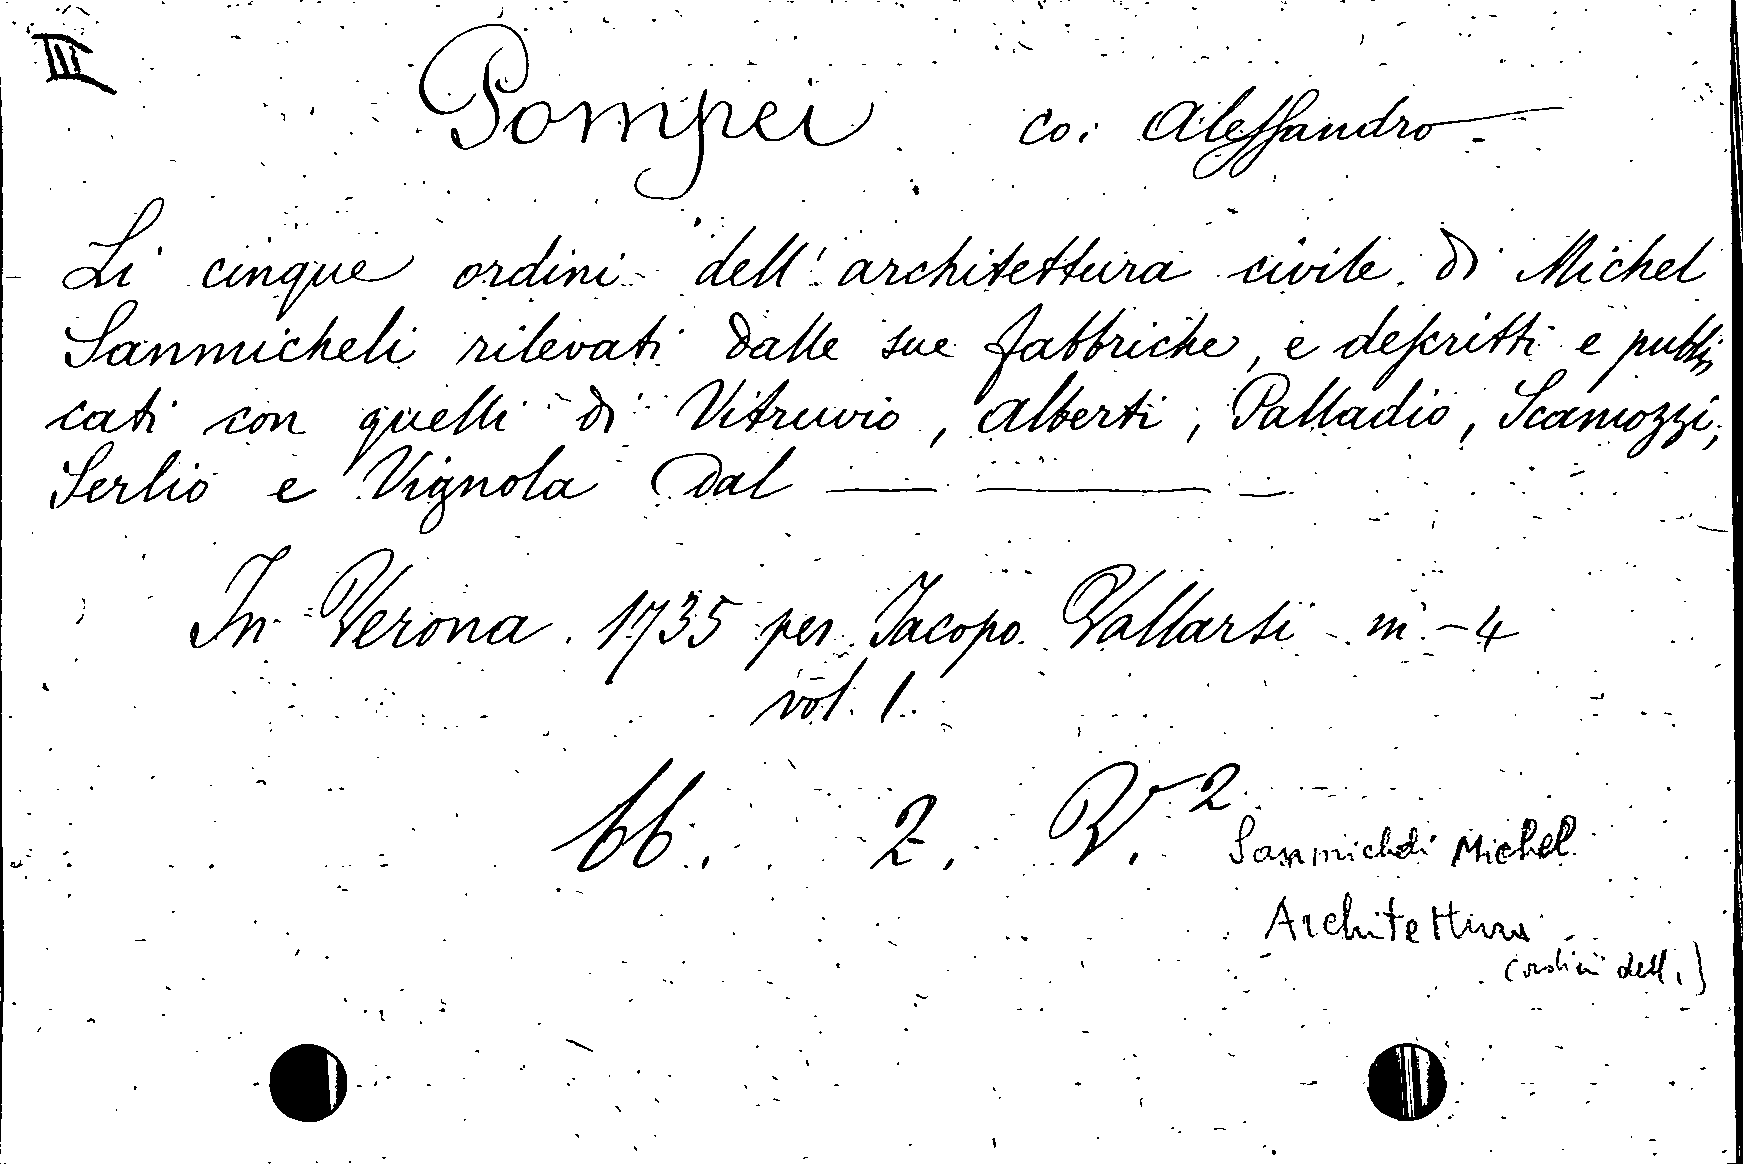 III
Pompei co: Alessandro
Li cinque ordini dell'architettura civile di Michel
Sanmicheli rilevati dalle sue fabbriche, e descritti e pubbli
cati con quelli di Vitruvio, Alberti, Palladio, Scamozzi,
Serlio e Vignola dal — — —
In Verona. 1735 per Jacopo Vallarsi in-4
vol. 1.
bb. 2. V.2
Sanmicheli Michel
Architettura
(ordini dell')